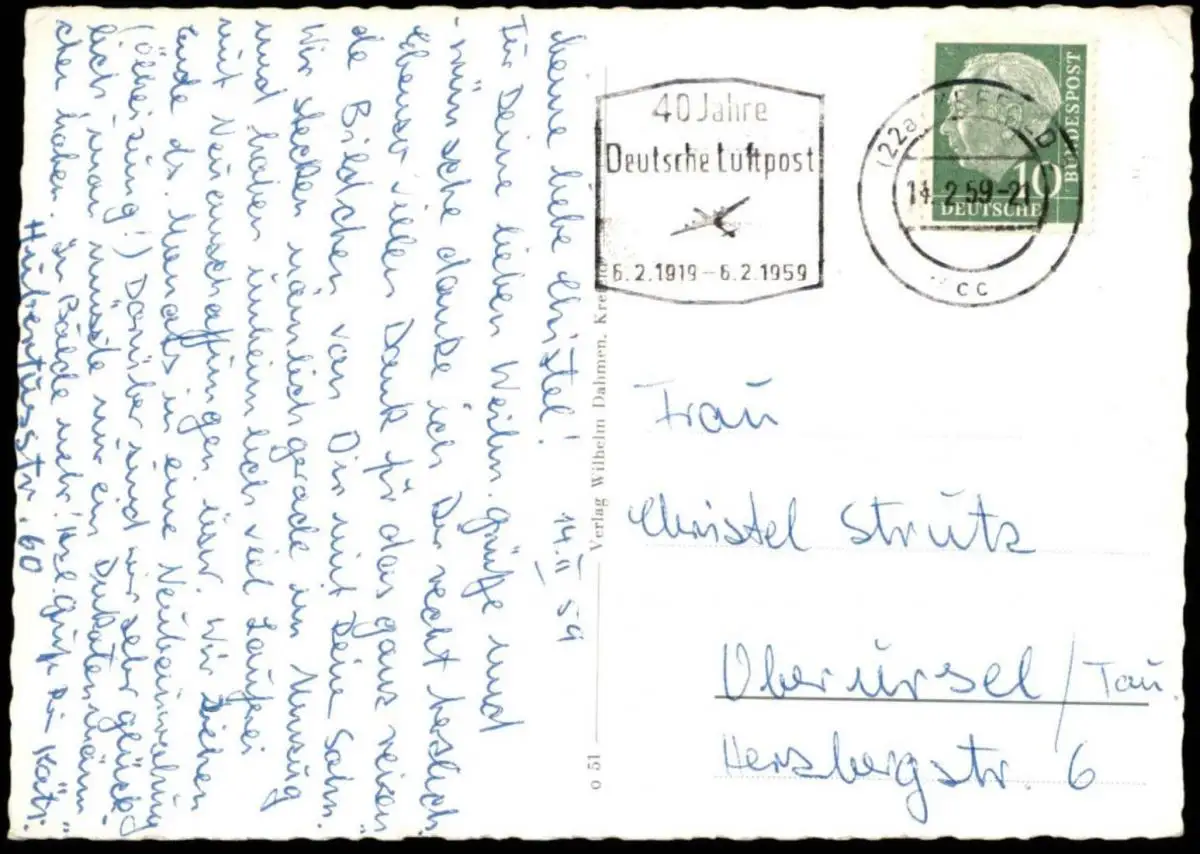 Meine liebe Christel! 14. II 59
Für Deine lieben Weihn. grüße und
-wünsche danke ich Dir recht herzlich.
Ebenso vielen Dank für das ganz reizen
de Bildchen von Dir mit Deine Sohn.
Wir stecken nämlich gerade im Umzug
und haben unheimlich viel Lauferei
mit Neuanschaffungen usw. Wir ziehen
Ende ds. Monats in eine Neubauwohnung
(Ölheizung!) Darüber sind wir sehr glück-
lich, man müsste nur ein Dukatenmänn-
chen haben. In Bälde mehr! Herzl. Grüße Dir Käte.
Hubertusstr. 60
Verlag Wilhelm Dahmen, Kre
o 51
40 Jahre
Deutsche Luftpost
6.2.1919 – 6.2.1959
(22a)
14.2.59-21
cc
10
DEUTSCHE
BUNDESPOST
Frau
Christel Strutz
Oberursel/Tau.
Herzbergstr. 6